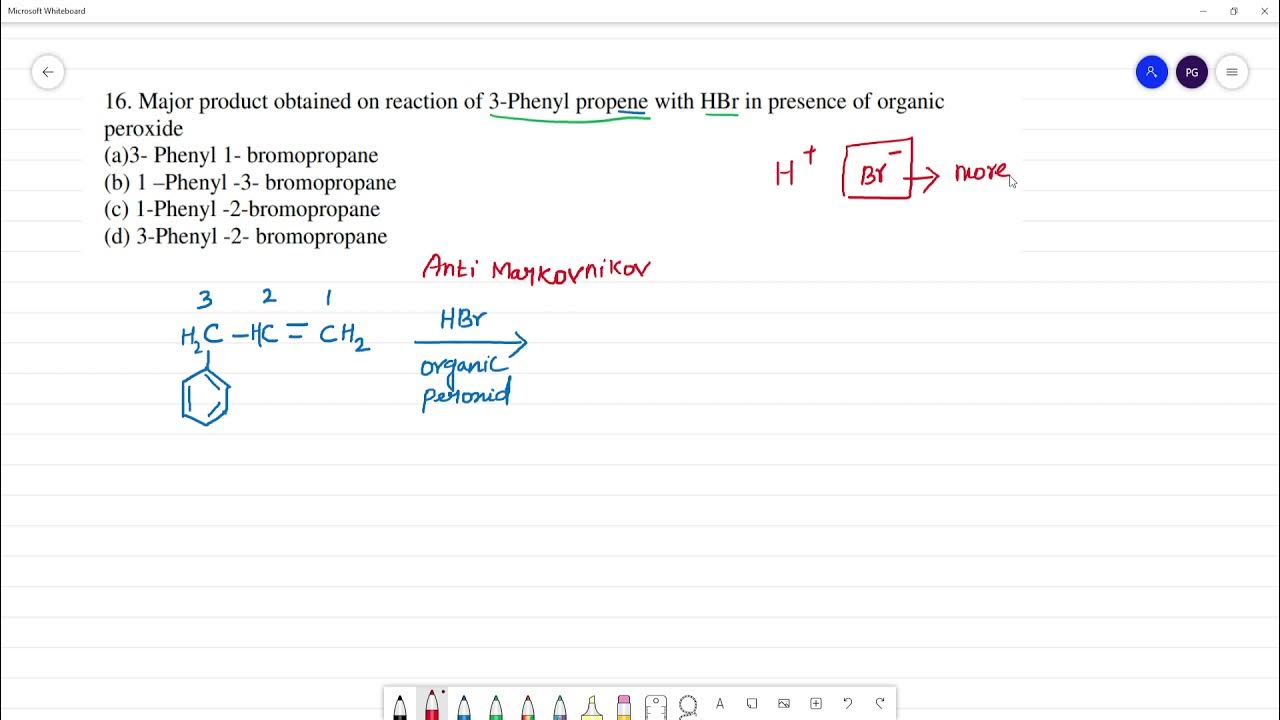 Microsoft Whiteboard
PG
16. Major product obtained on reaction of 3-Phenyl propene with HBr in presence of organic
peroxide
(a)3- Phenyl 1- bromopropane
(b) 1 –Phenyl -3- bromopropane
(c) 1-Phenyl -2-bromopropane
(d) 3-Phenyl -2- bromopropane
H⁺ Br⁻ → more
Anti Markovnikov
3 2 1
H₂C – HC = CH₂
HBr
organic
peroxid
A